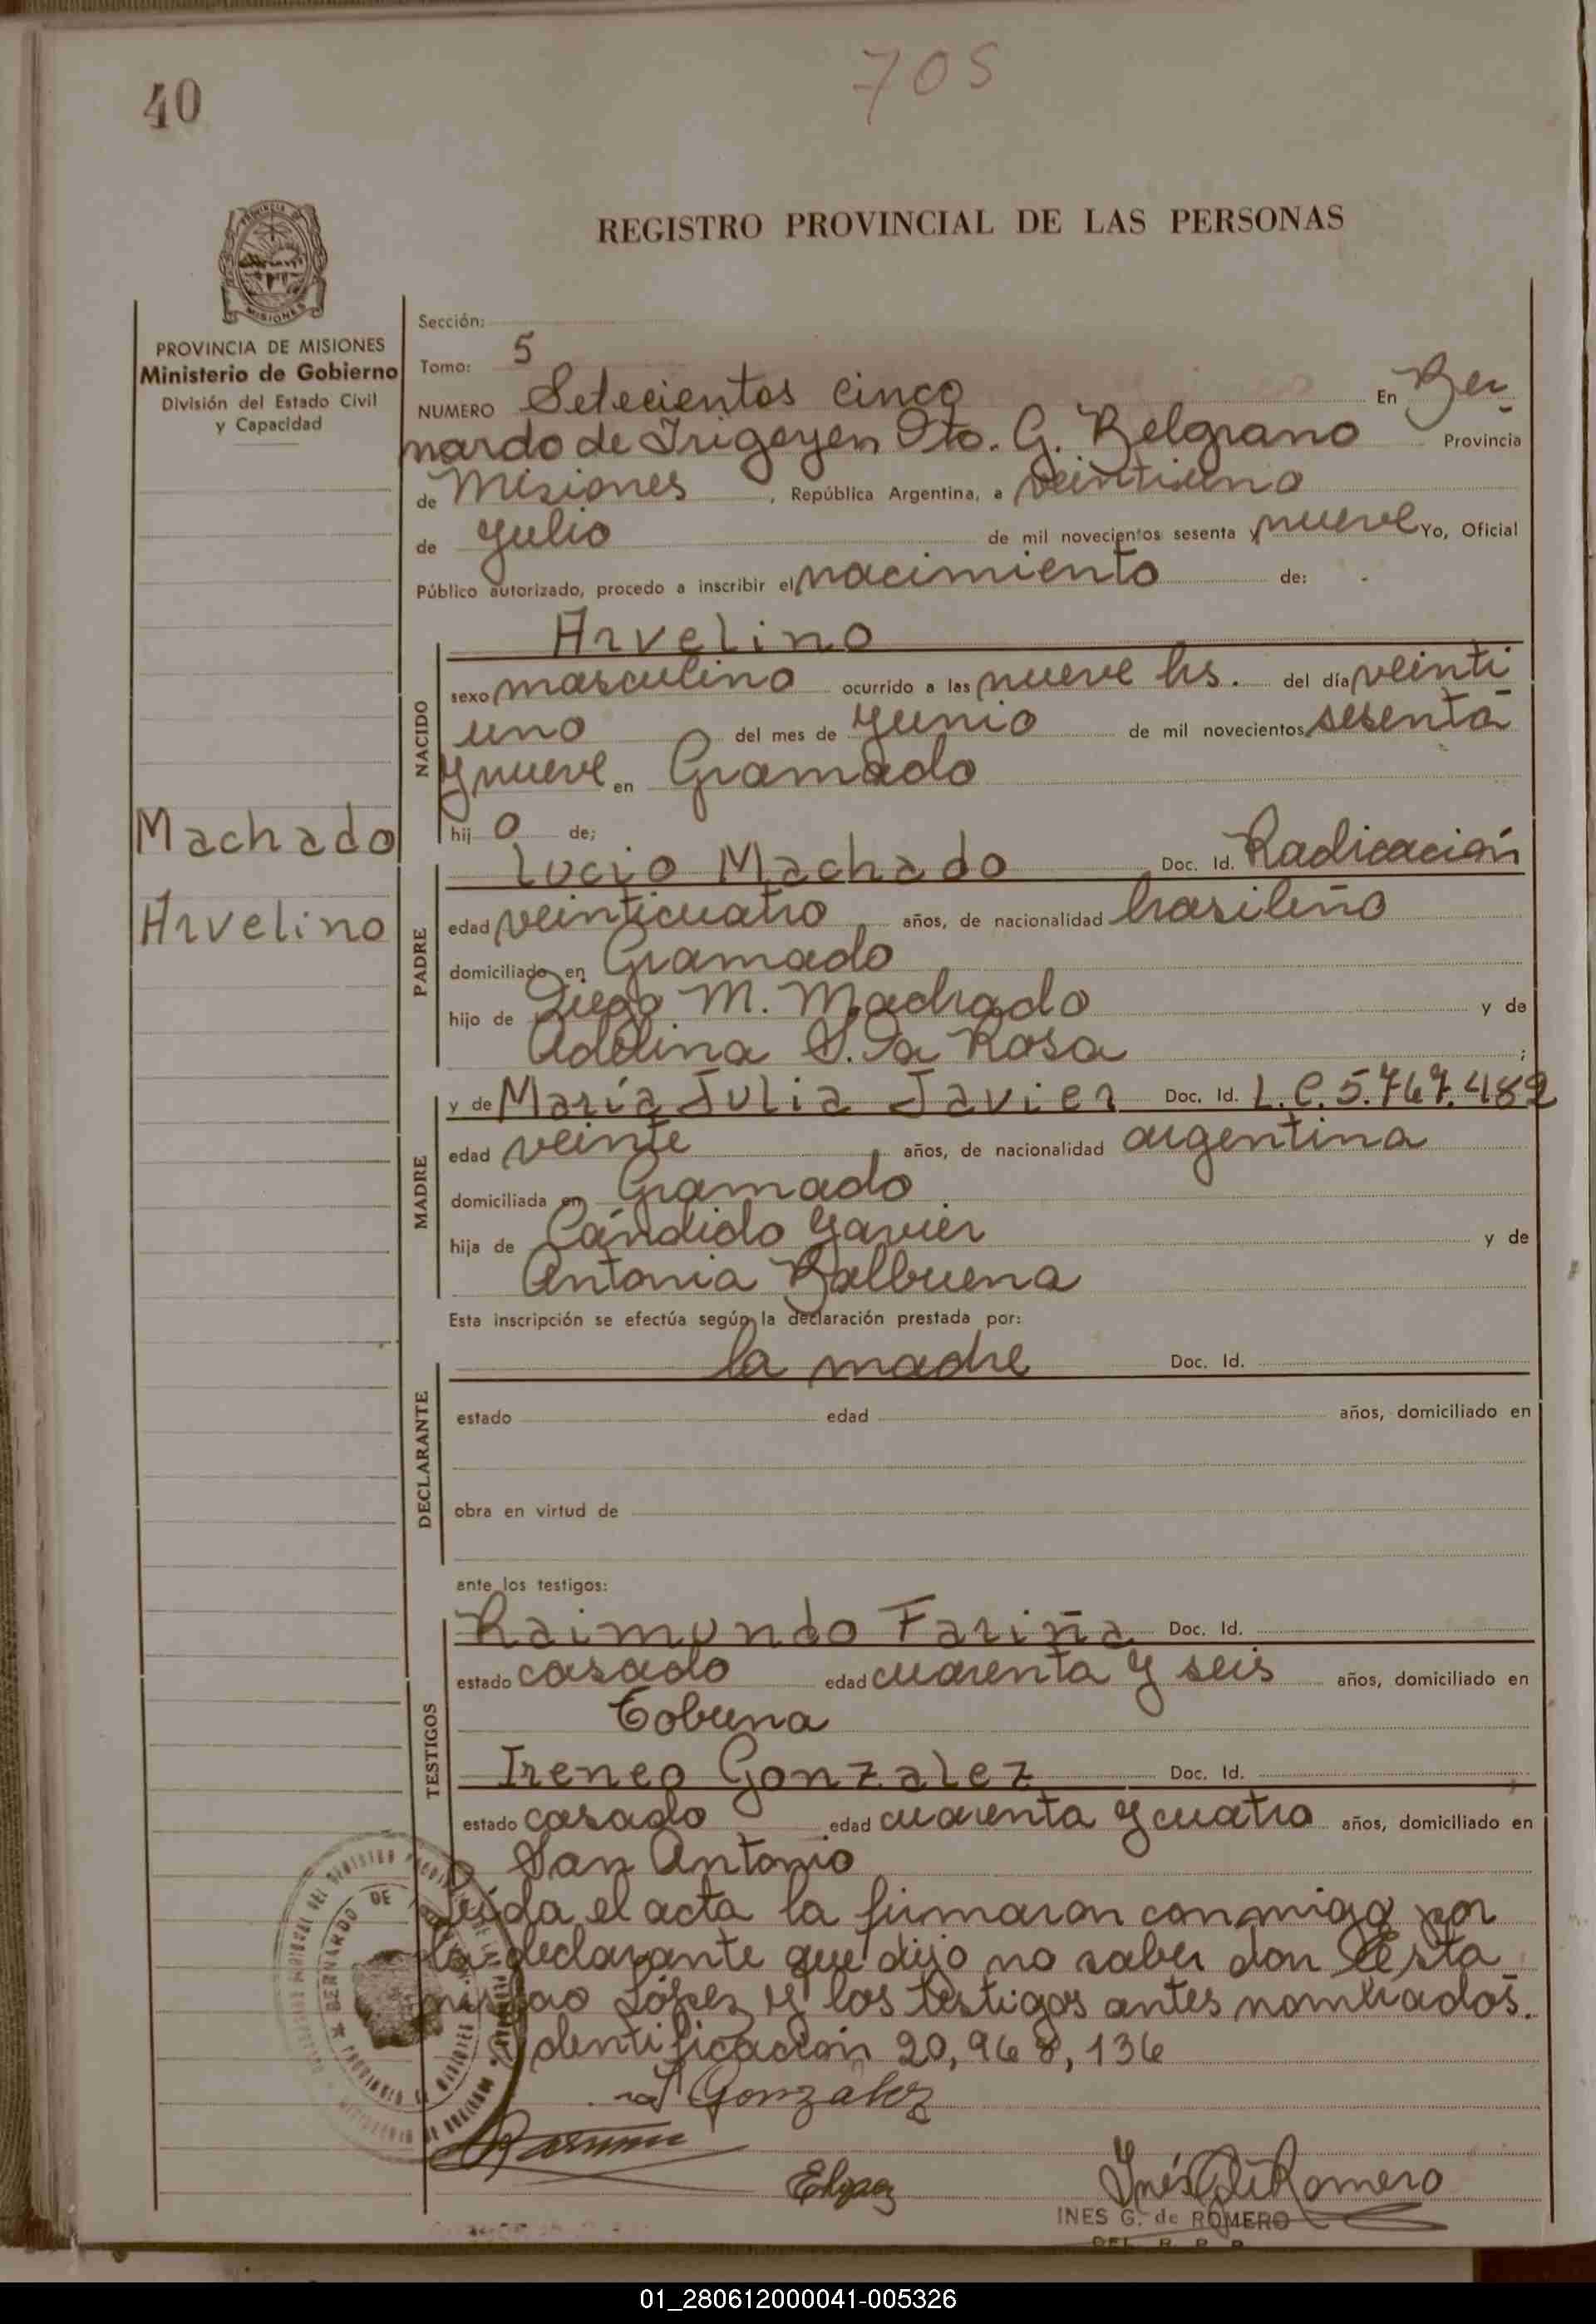 705
40
REGISTRO PROVINCIAL DE LAS PERSONAS
PROVINCIA DE MISIONES
Ministerio de Gobierno
División del Estado Civil
y Capacidad
Sección:
Tomo: 5
NUMERO Setecientos cinco En Ber
nardo de Irigoyen Dto. G. Belgrano Provincia
de Misiones, República Argentina, a veintiuno
de Julio de mil novecientos sesenta y nueve Yo, Oficial
Público autorizado, procedo a inscribir el nacimiento de:
Arvelino
NACIDO
sexo masculino ocurrido a las nueve hs. del día veinti
uno del mes de Junio de mil novecientos sesenta
y nueve en Gramado
hij o de;
Machado
Arvelino
PADRE
Lucio Machado Doc. Id. Radicación
edad veinticuatro años, de nacionalidad brasileño
domiciliado en Gramado
hijo de Diego M. Machado y de
Adelina S. Da Rosa ;
MADRE
y de María Julia Javier Doc. Id. L.C. 5.767.482
edad veinte años, de nacionalidad argentina
domiciliada en Gramado
hija de Cándido Javier y de
Antonia Balbuena
Esta inscripción se efectúa según la declaración prestada por:
DECLARANTE
la madre Doc. Id.
estado edad años, domiciliado en
obra en virtud de
ante los testigos:
TESTIGOS
Raimundo Fariña Doc. Id.
estado casado edad cuarenta y seis años, domiciliado en
Tobuna
Ireneo Gonzalez Doc. Id.
estado casado edad cuarenta y cuatro años, domiciliado en
San Antonio
Leída el acta la firmaron conmigo por
la declarante que dijo no saber don Esta
nislao López y los testigos antes nombrados.
Identificación 20,968,136
Gonzalez
ELopez
Inés G. de Romero
INES G. de ROMERO
DEL. R. P. P.
01_280612000041-005326